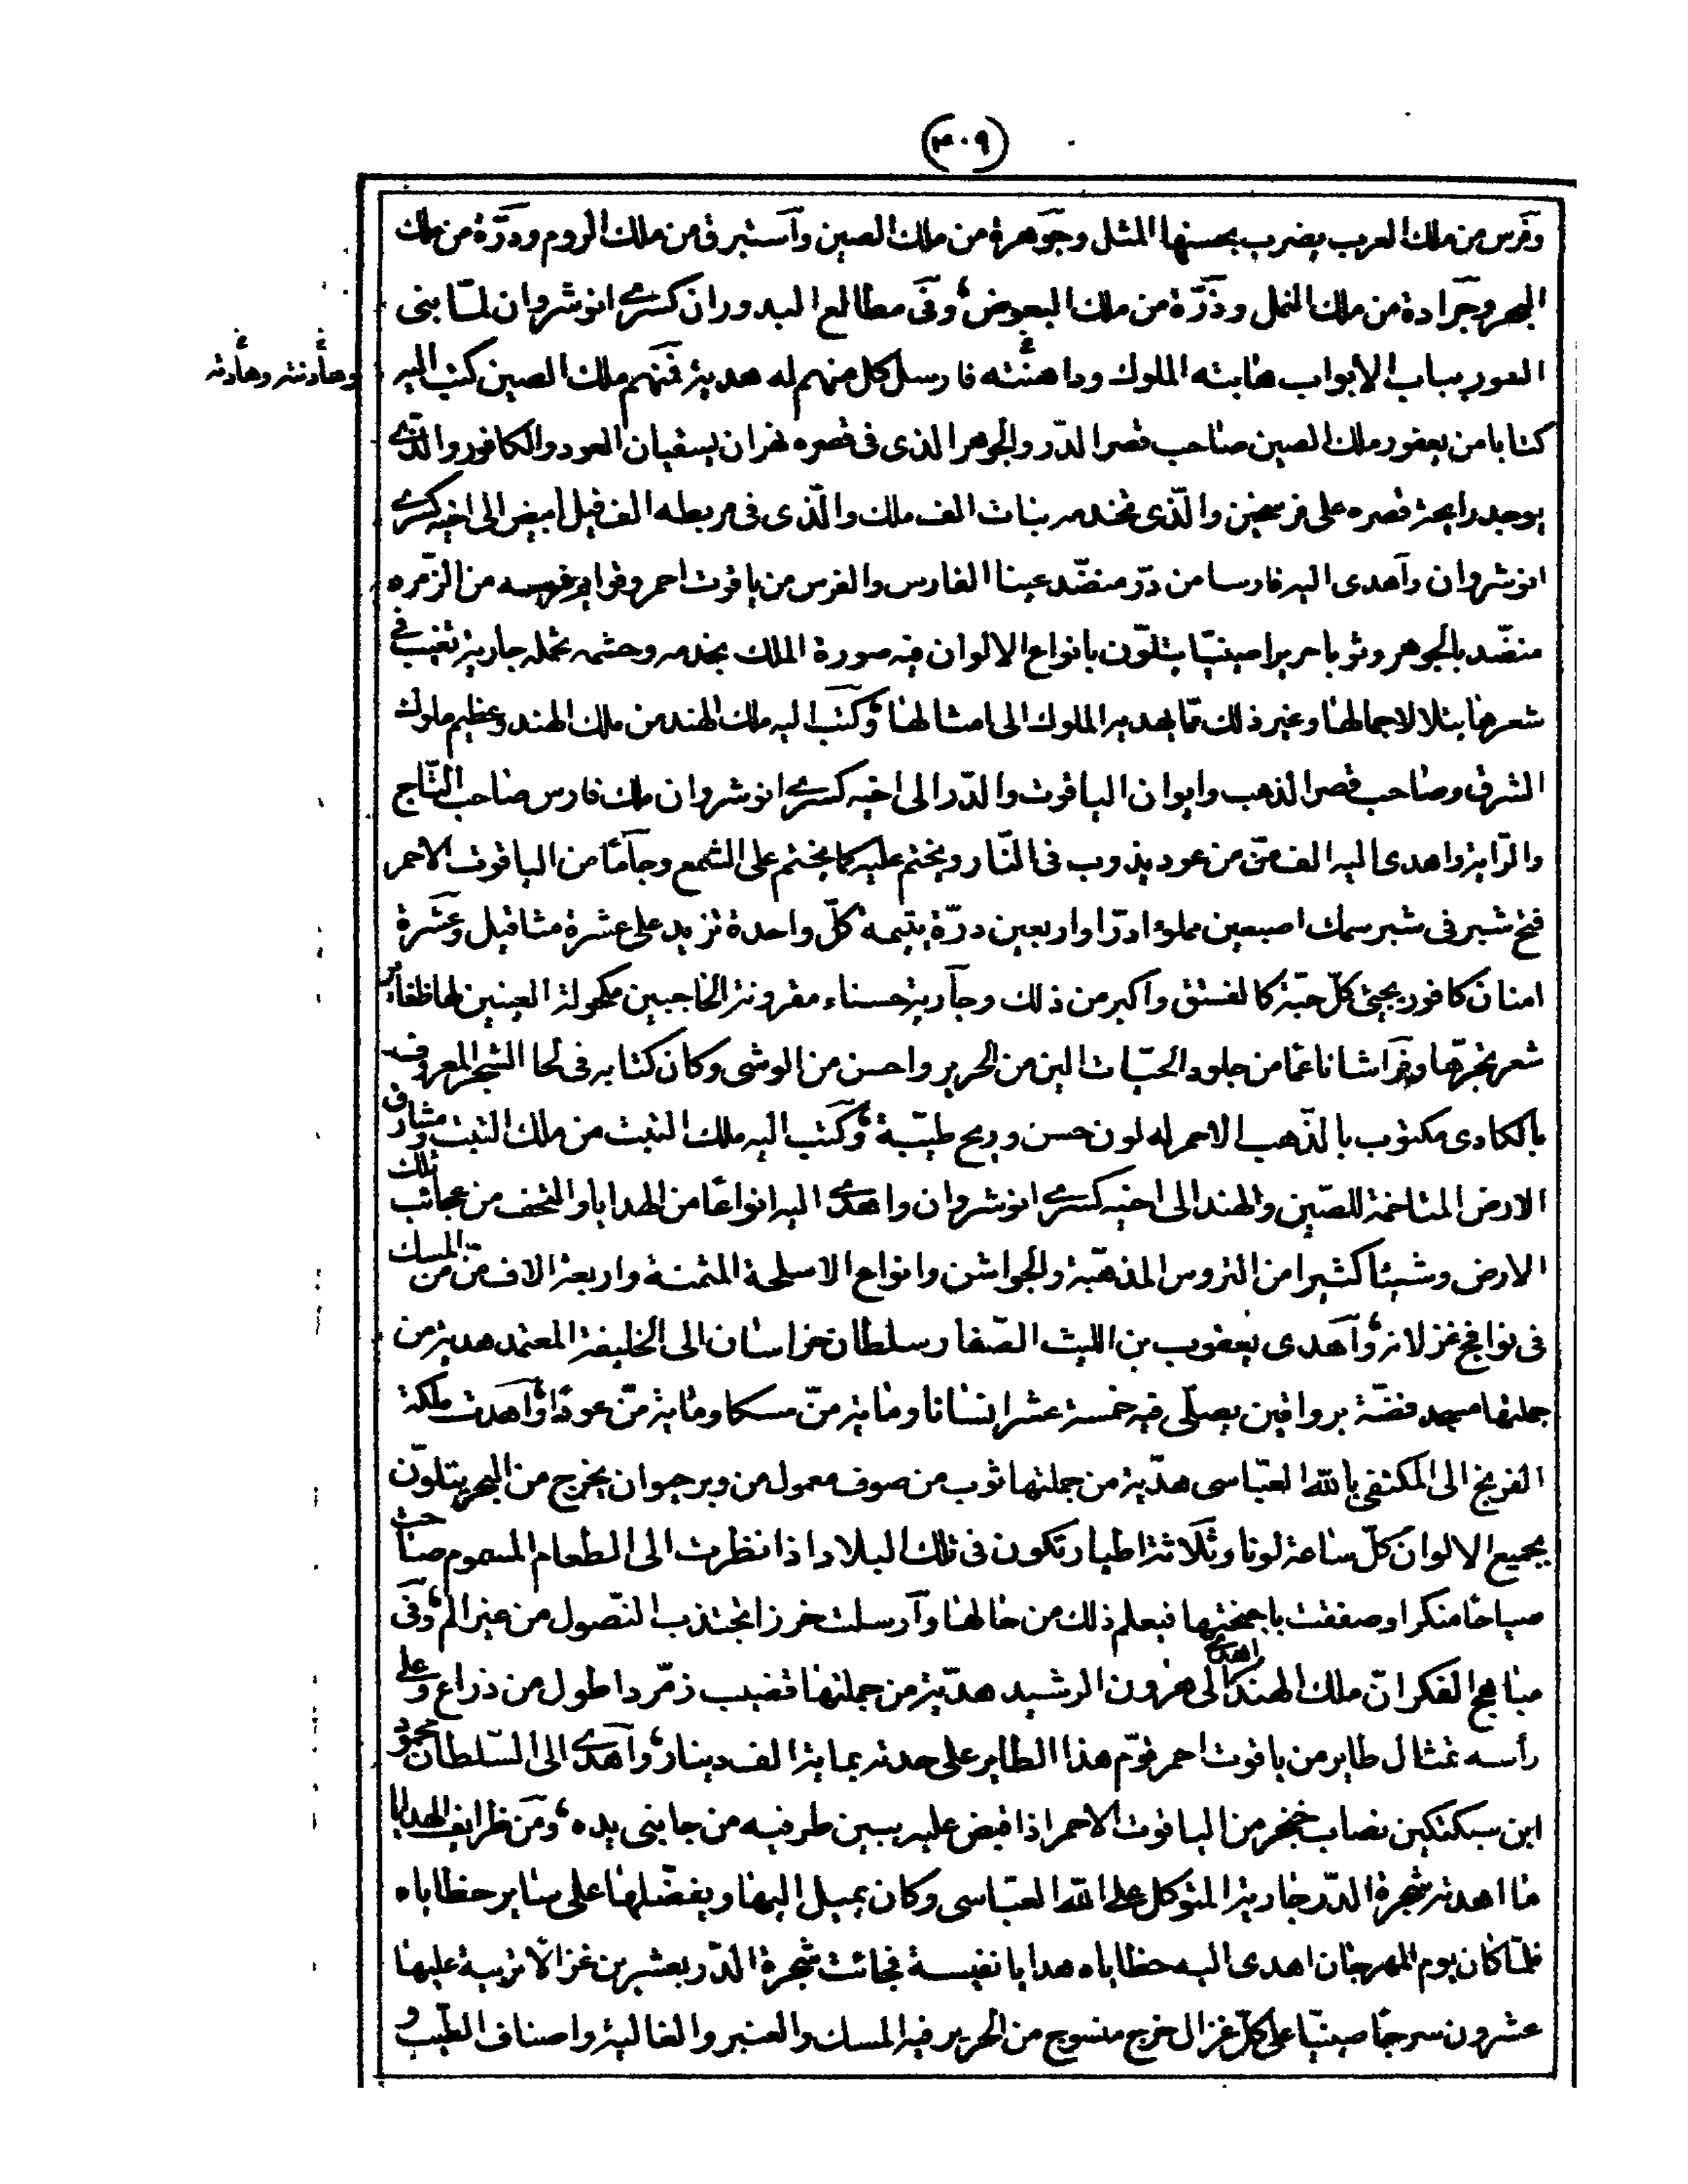 (٣٠٩)
وفرس من ملك العرب يضرب بحسنها المثل وجوهرة من ملك الصين وآستبرق من ملك الروم ودرّة من ملك
البحر وجرادة من ملك النمل وذرّة من ملك البعوض وفى مطالع البدور ان كسرى انوشروان لمّا بنى
السور بباب الابواب هابته الملوك وداهنته فارسل كل منهم له هدية فمنهم ملك الصين كتب اليه
وهادنته وهادته
كتابا من يعفور ملك الصين صاحب قصر الدّر والجوهر الذى فى قصره نهران يسقيان العود والكافور والذّى
يوجد رايحة قصره على فرسخين والّذى تخدمه بنات الف ملك والّذى فى مربطه الف فيل ابيض الى اخيه كسرى
انوشروان وآهدى اليه فارسا من درّ منضّد عينا الفارس والفرس من ياقوت احمر وقوايم فرسه من الزّمرد
منضّد بالجوهر وثوبا حريرا صينيّا يتلوّن بانواع الالوان فيه صورة الملك بخدمه وحشمه تحمله جارية تغيب فى
شعرها يتلالا جمالها وغير ذلك ممّا يهديه الملوك الى امثالها وكتب اليه ملك الهند من ملك الهند وعظيم ملوك
الشرق وصاحب قصر الذهب وايوان الياقوت والدّر الى اخيه كسرى انوشروان ملك فارس صاحب التّاج
والرّاية واهدى اليه الف منّ من عود يذوب فى النّار ويختم عليه كما يختم على الشمع وجآما من الياقوت الاحمر
فتح شبر فى شبر سمك اصبعين مملوءا درّا واربعين درّة يتيمة كلّ واحدة تزيد على عشرة مثاقيل وعشرة
امنان كافور يجئ كلّ حبّة كالفستق واكبر من ذلك وجآرية حسناء مقرونة الحاجبين مكحولة العينين لها ظفاير
شعر تجرّها وفراشا ناعما من جلود الحيّات الين من الحرير واحسن من الوشى وكان كتابه فى لحا الشجر المعروف
بالكادى مكتوب بالذّهب الاحمر له لون حسن وريح طيّبة وكتب اليه ملك التبت من ملك التبت ومشارق
الارض المتاخمة للصّين والهند الى اخيه كسرى انوشروان واهدى اليه انواعا من الهدايا والتحف من عجائب تلك
الارض وشيئا كثيرا من التروس المذهّبة والجواشن وانواع الاسلحة المثمنة واربعة الاف منّ من المسك
فى نوافج غزلانه وآهدى يعقوب بن الليث الصّفار سلطان خراسان الى الخليفة المعتمد هدية من
جملتها مسجد فضّة برواقين يصلّى فيه خمسة عشر انسانا وماية منّ مسكا وماية منّ عودا وآهدت ملكة
الفرنج الى المكتفى بالله العبّاسى هدّية من جملتها ثوب من صوف معمول من وبر حيوان يخرج من البحر يتلوّن
بجميع الالوان كلّ ساعة لونا وثلاثة اطيار تكون فى تلك البلاد اذا نظرت الى الطعام المسموم صاحت
صياحا منكرا وصفقت باجنحتها فيعلم ذلك من حالها وآرسلت خرزا تجتذب النصّول من غير الم وفى
مباهج الفكر انّ ملك الهند اهدى الى هرون الرشيد هدّية من جملتها قضيب زمّرد اطول من ذراع وعلى
رأسه تمثال طاير من ياقوت احمر قوّم هذا الطاير على حدته بماية الف دينار وآهدى الى السّلطان محمود
ابن سبكتكين نصاب خنجر من الياقوت الاحمر اذا قبض عليه يبين طرفيه من جانبى يده ومن ظرايف الهدايا
ما اهدته شجرة الدّر جارية المتوكل على الله العبّاسى وكان يميل اليها ويفضّلها على ساير حظاياه
فلمّا كان يوم المهرجان اهدى اليه حظاياه هدايا نفيسة فجائت شجرة الدّر بعشرين غزالا تربية عليها
عشرون سرجا صينيّا على كلّ غزال خرج منسوج من الحرير فيه المسك والعنبر والغالية واصناف الطّيب و